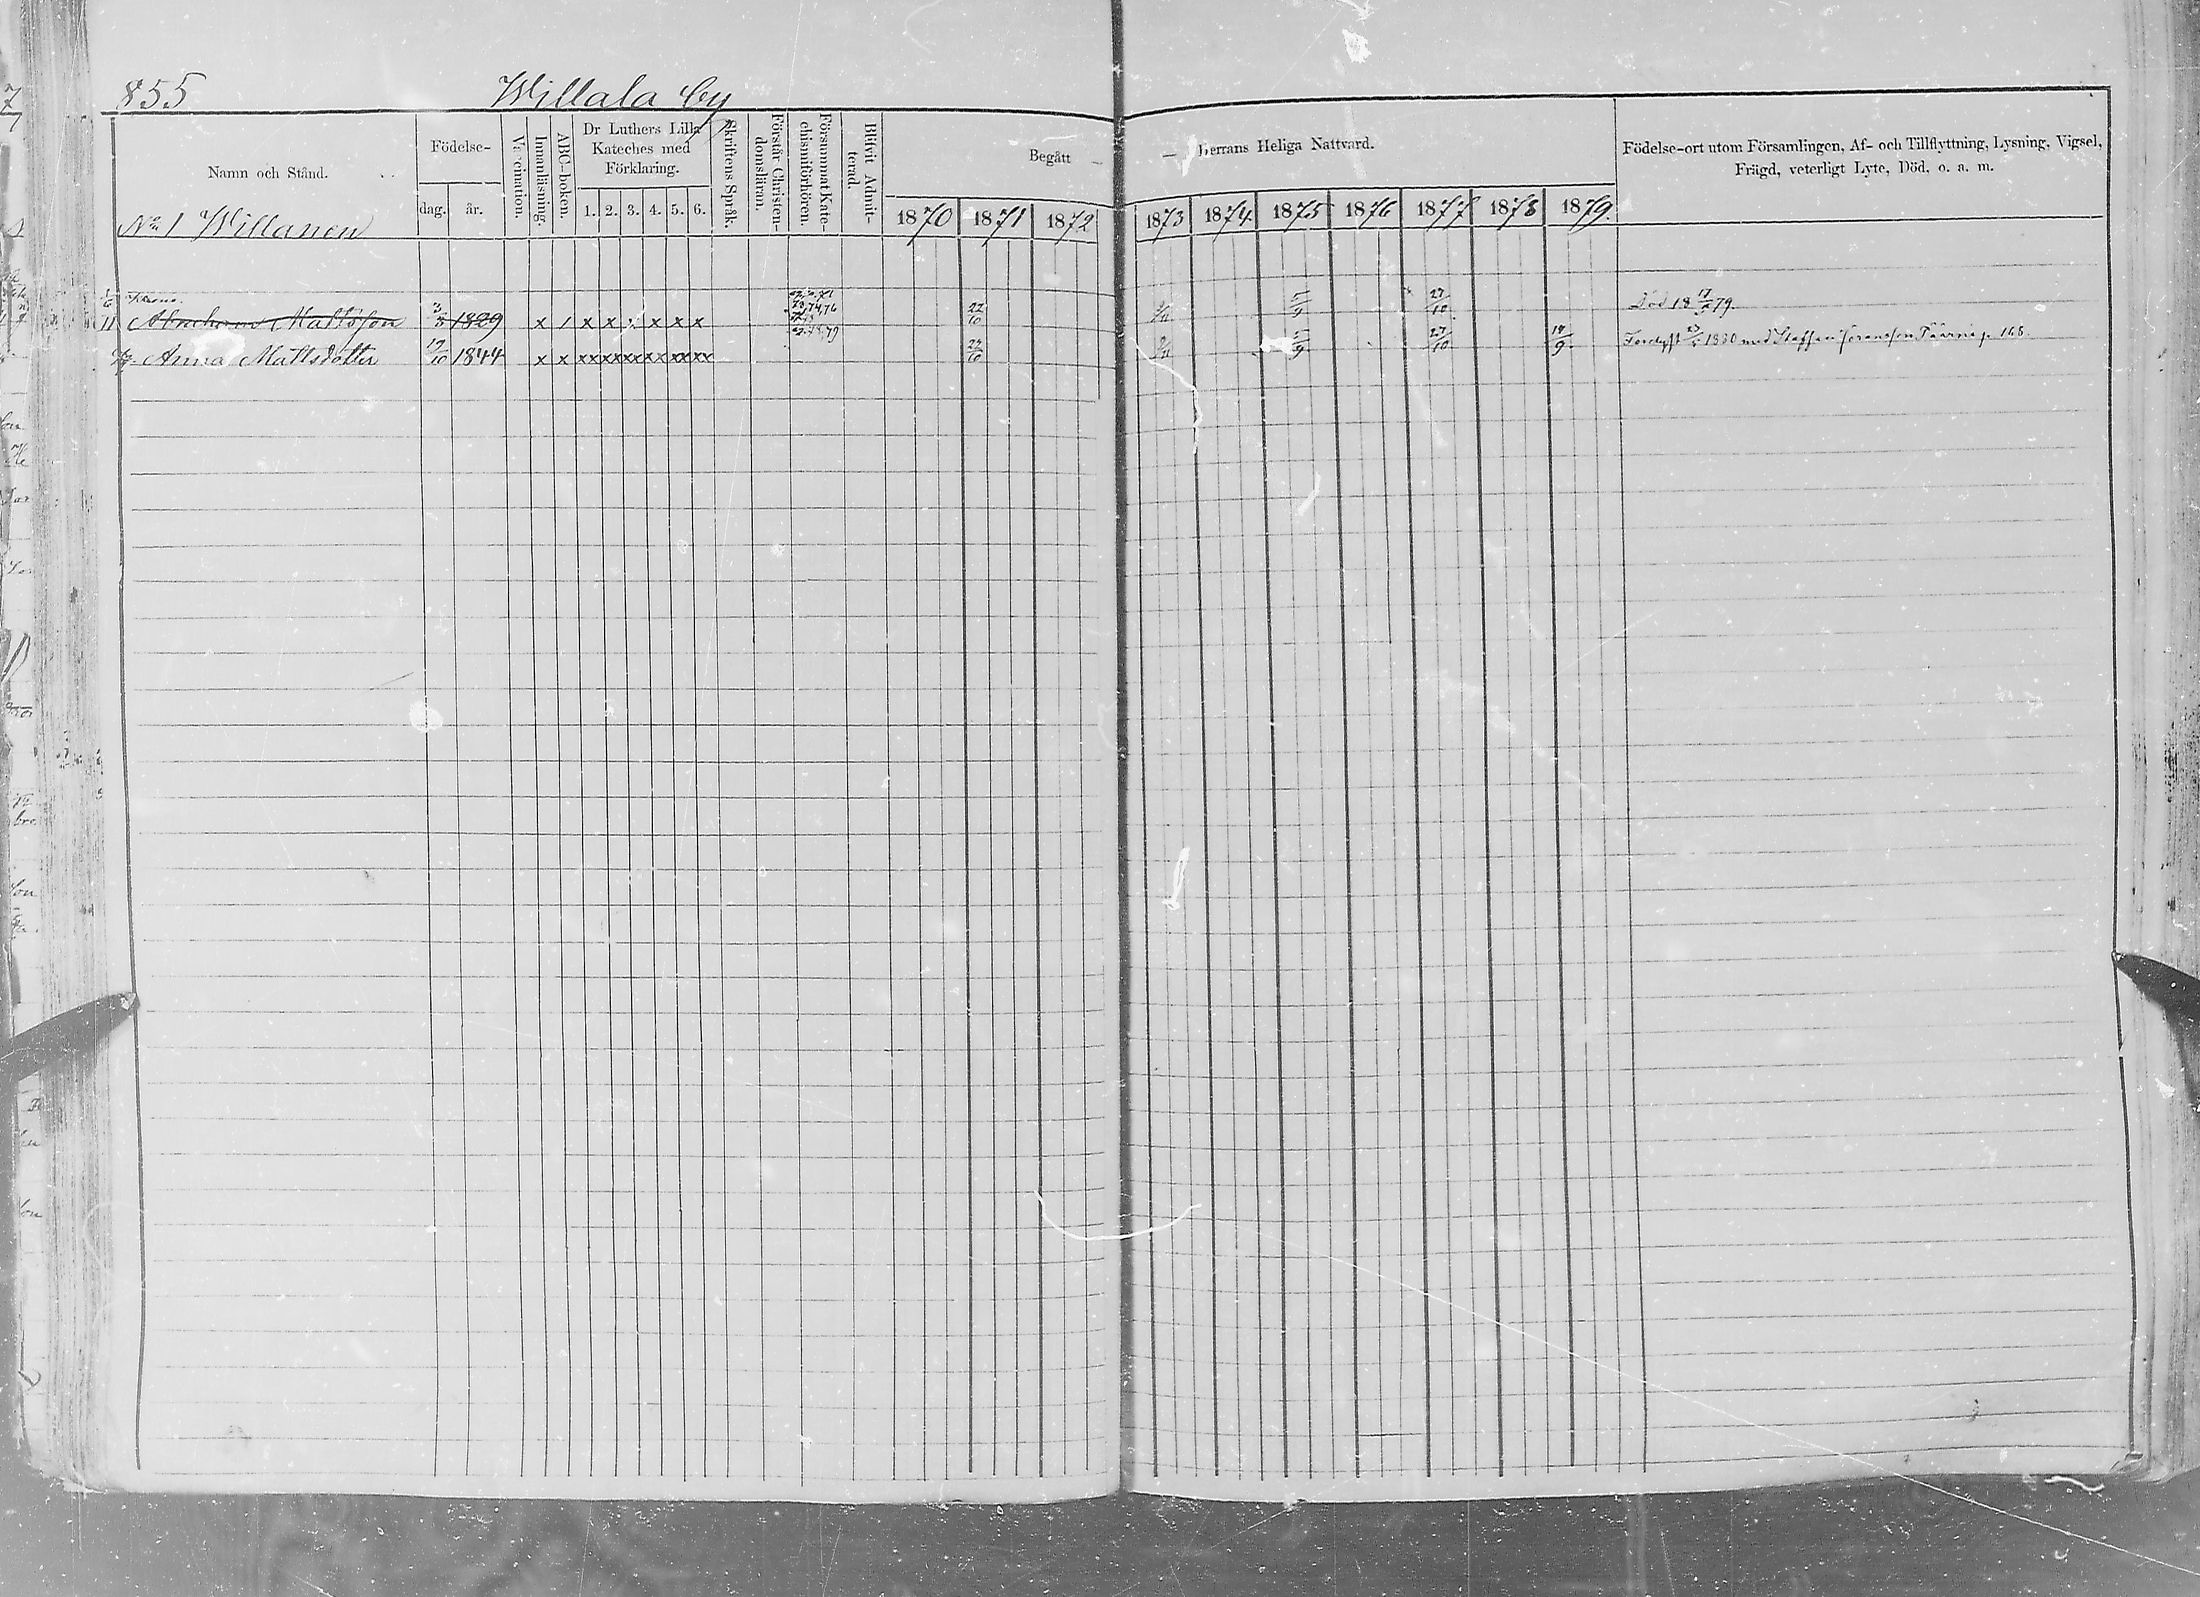 855 Willala by
Namn och Stånd.
Födelse-
dag. år.
Vaccination.
Innanläsning.
ABC-boken.
Dr Luthers Lilla
Kateches med
Förklaring.
1. 2. 3. 4. 5. 6.
Skriftens Språk.
Förstår Christen-
domsläran.
Försummat Kate-
chismiförhören.
Blifvit Admit-
terad.
Begått
Herrans Heliga Nattvard.
1870 1871 1872 1873 1874 1875 1876 1877 1878 1879
Födelse-ort utom Församlingen, Af- och Tillflyttning, Lysning, Vigsel,
Frägd, veterligt Lyte, Död, o. a. m.
No 1 Willanen
Abraham Mattsson 1829 x / x x x x x 22/10 5/9 27/10 Död 18 17/5 79.
Anna Mattsdotter 19/10 1844 x x xx xx xx xx xx xx 22/10 5/9 27/10 14/9 1880 med Staffan p. 168.